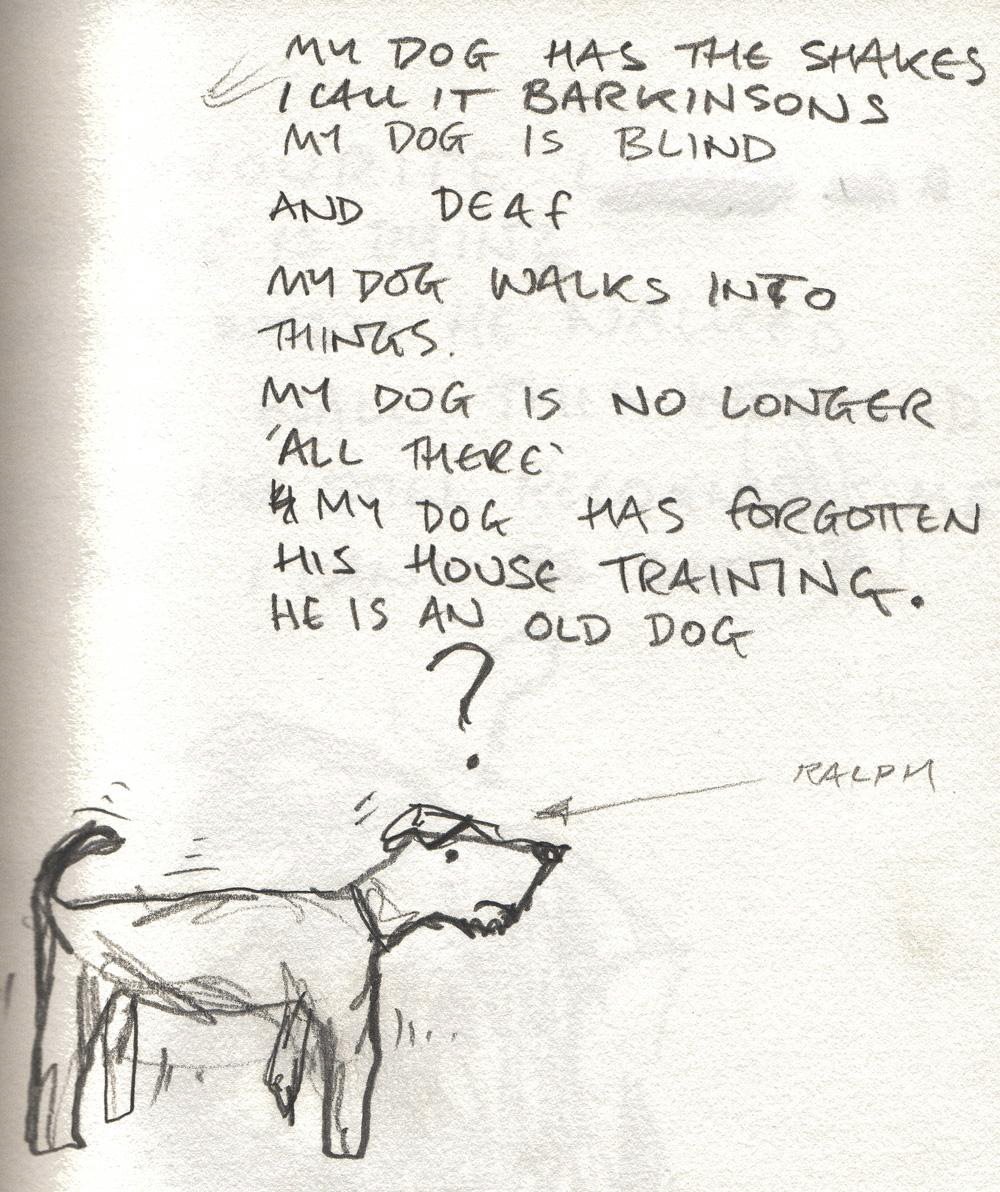 MY DOG HAS THE SHAKES
I CALL IT BARKINSONS
MY DOG IS BLIND
AND DEAf
MY DOG WALKS INTO
THINGS.
MY DOG IS NO LONGER
'ALL THERE'
MY DOG HAS fORGOTTEN
HIS HOUSE TRAINING.
HE IS AN OLD DOG
?
RALPH